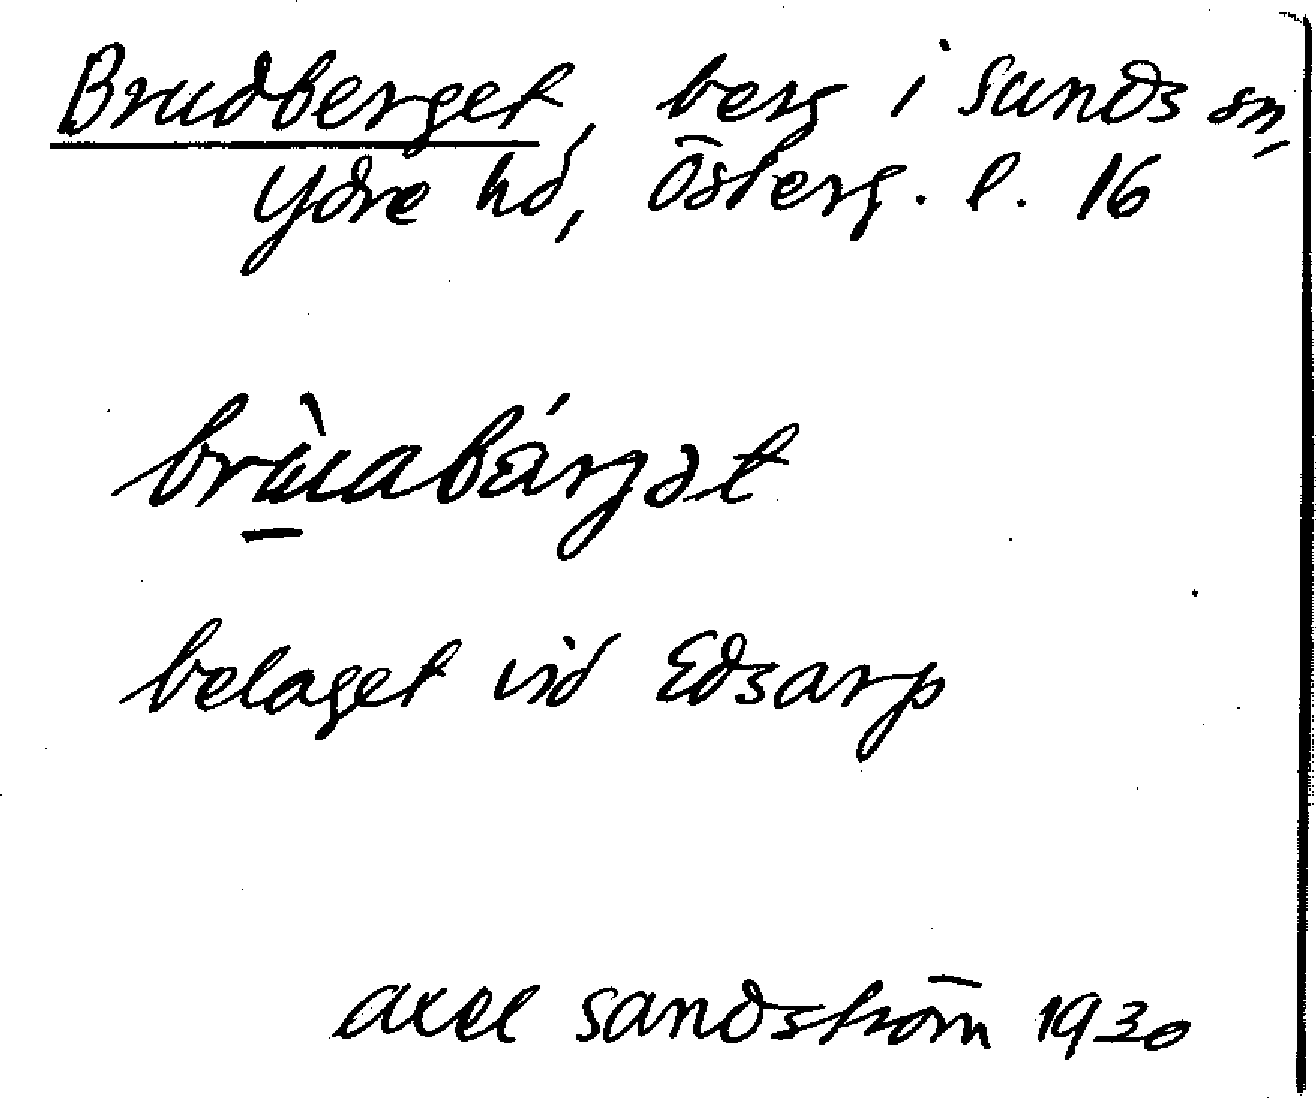 Brudberget, berg i Sunds sn
Ydre hd, Österg. l. 16
brùabárgət
belaget vid Edsarp
Axel Sandström 1930